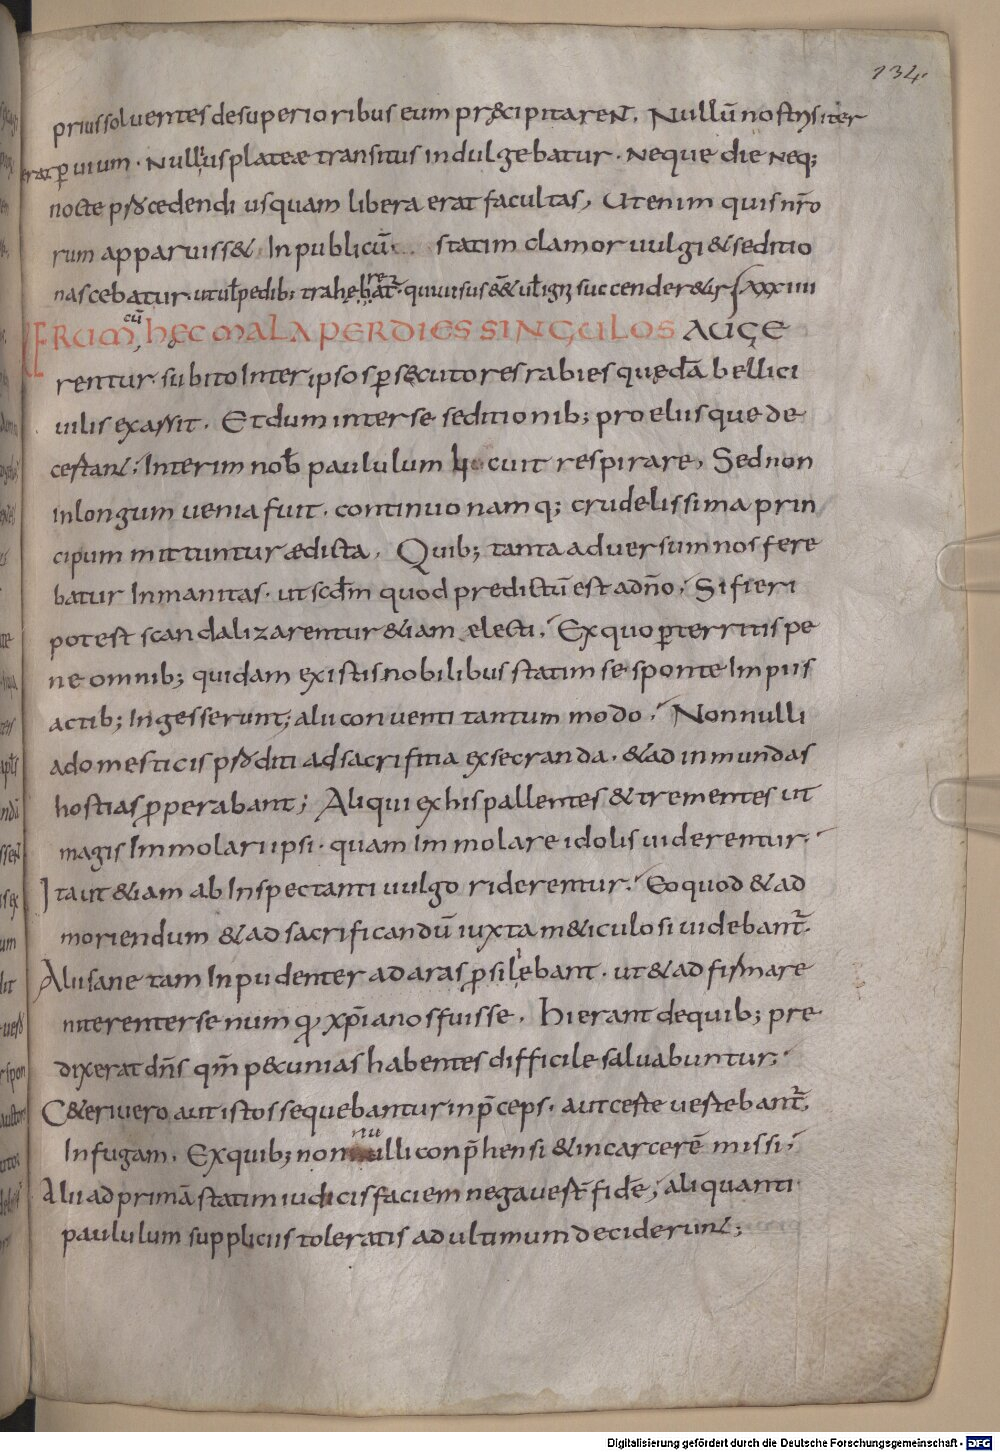 134.
prius solventes de superioribus eum præcipitareɴт. Nullū nostrīs iter
erat p̱ uium. nullius plateæ transitus indulgebatur. neque die neq;
nocte procedendi usquam libera erat facultas, Ut enim quis nr̄o
rum apparuiss& In publicū. statim clamor uulgi & seditio
nascebatur. ut uł pedib; traherētur. qui uisus ēē& uł igni succender&ur XXXIIII
UERUM cū hęc MALA PER DIES SINGULOS AUGE
rentur. subito Inter ipsos p̱secutores rabies quędā belli ci
uilis exarsit. Et dum inter se seditionib; proeliisque de
certant; Interim nob̄ paululum licuit respirare, Sed non
in longum uenia fuit. continuo namq; crudelissima prin
cipum mittuntur ædicta, Quib; tanta aduersum nos fere
batur Inmanitas. ut scd̄m quod predictū est a dn̄o, Si fieri
potest scandalizarentur &iam electi, Ex quo p̱territis pe
ne omnib; quidam ex istis nobilibus statim se sponte Impiis
actib; Ingesserunt; alii conuenti tantum modo, Nonnulli
a domesticis proditi ad sacrifitia exsecranda. & ad inmundas
hostias p̱perabant; Aliqui ex his pallentes & trementes ut
magis Immolari ipsi. quam Immolare idolis uiderentur.
Ita ut &iam ab Inspectanti uulgo riderentur. Eo quod & ad
moriendum & ad sacrificandū iuxta m&iculosi uidebant̄.
Alii sane tam Inpudenter ad aras p̱silięebant. ut & ad firmare
niterenter se numq̄ xp̄ianos fuisse. hi erant de quib; pre
dixerat dn̄s qm̄ p&cunias habentes difficile saluabuntur;
C&eri uero aut istos sequebantur in p̄ceps. aut certe uertebant̄
In fugam. Ex quib; nonnulli conp̄hensi & in carcerē missi,
Alii ad primā statim iudicis faciem negauer̄t fidē; aliquanti
paululum suppliciis toleratis ad ultimum deciderunt;
Digitalisierung gefördert durch die Deutsche Forschungsgemeinschaft - DFG